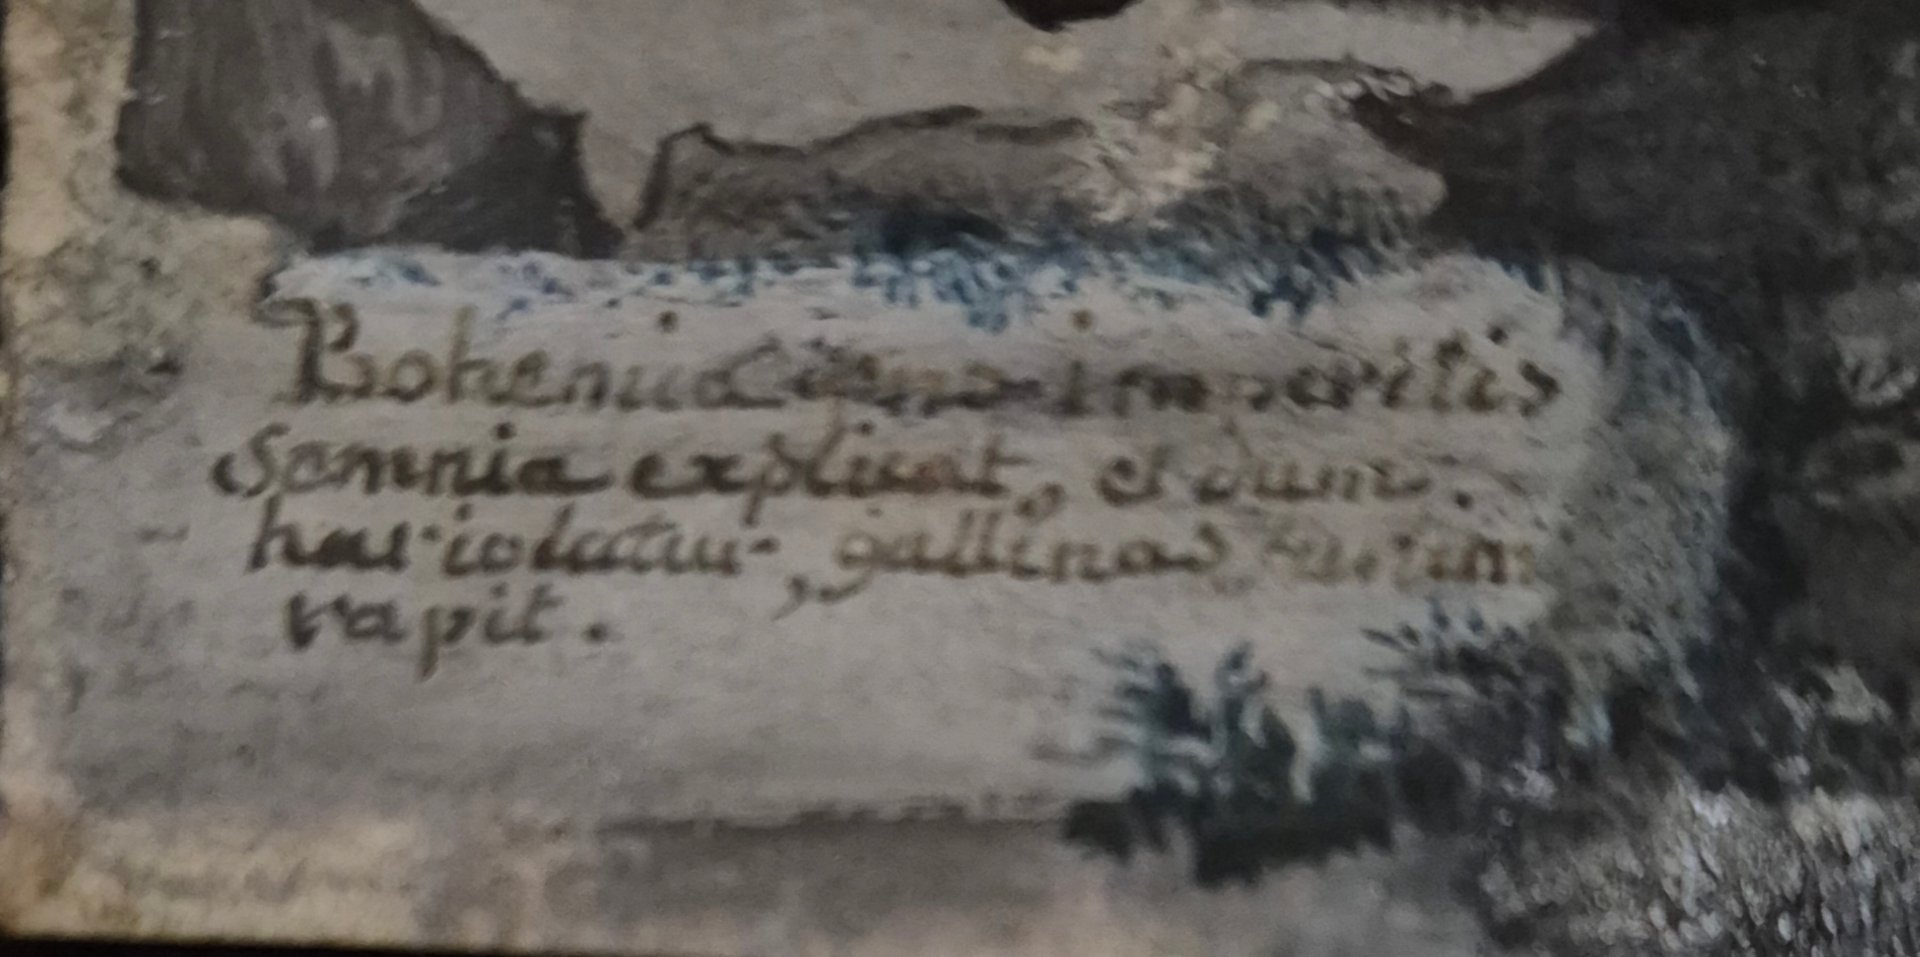 Bohemica gens imperitis
somnia explicat, et dum
hariolatur, gallinas furtim
rapit.